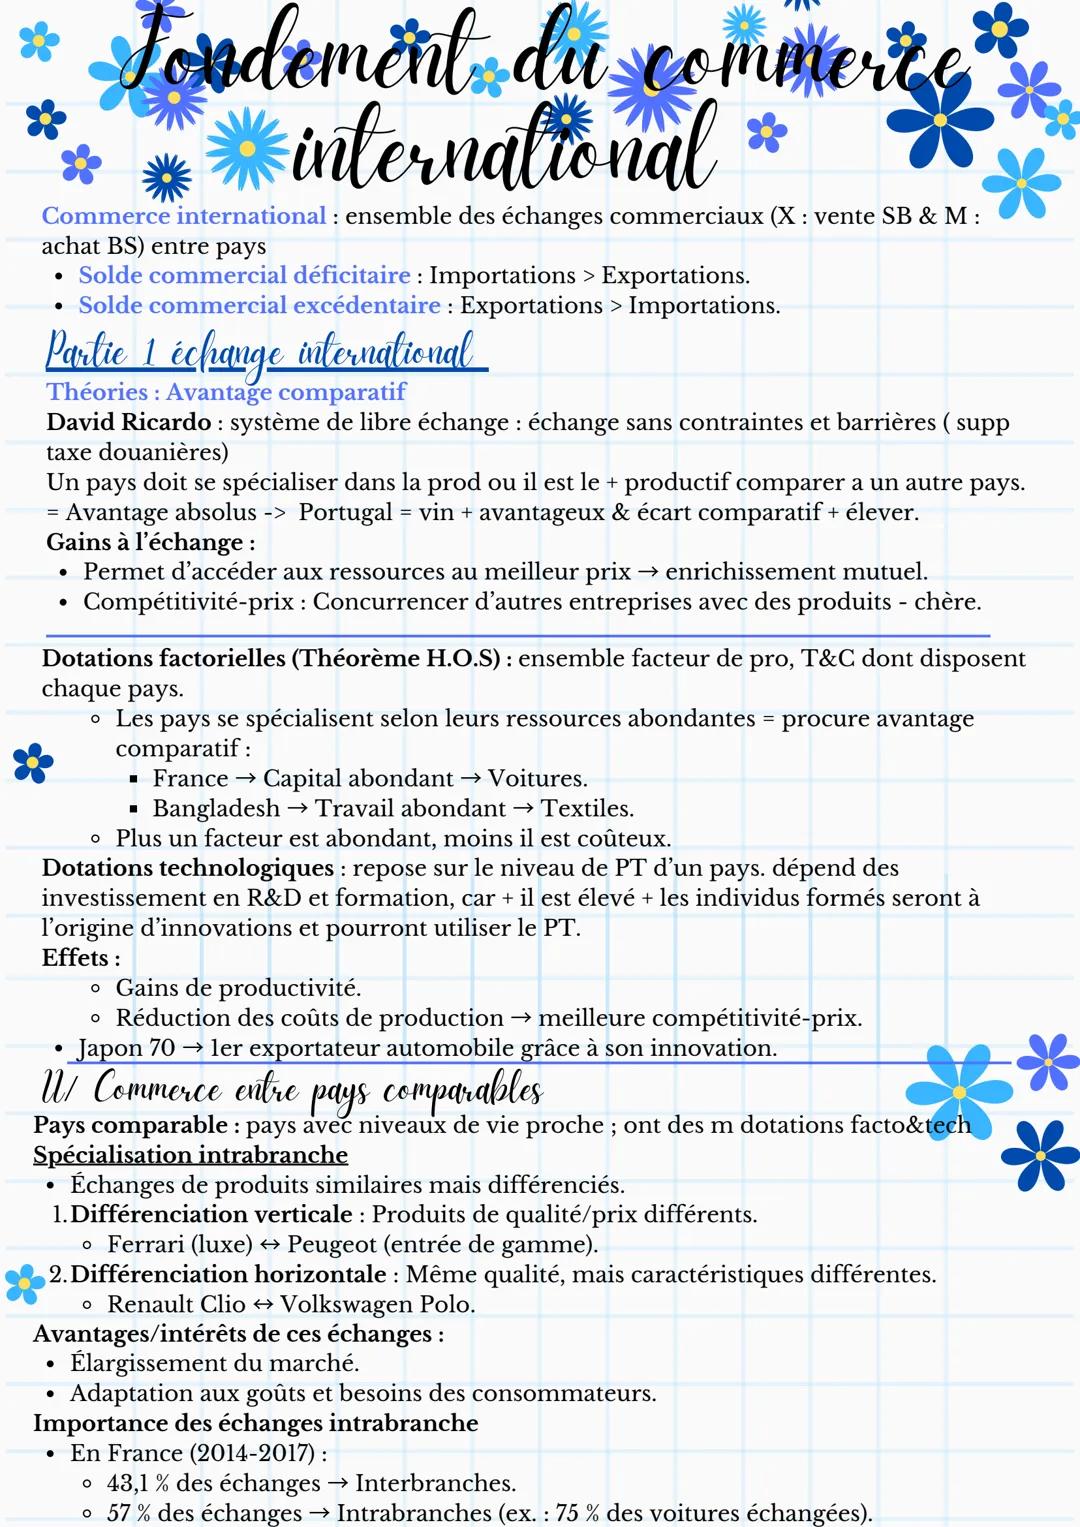 Fondement du commerce
international
Commerce international : ensemble des échanges commerciaux (X : vente SB & M :
achat BS) entre pays
• Solde commercial déficitaire : Importations > Exportations.
• Solde commercial excédentaire : Exportations > Importations.
Partie 1 échange international
Théories : Avantage comparatif
David Ricardo : système de libre échange : échange sans contraintes et barrières ( supp
taxe douanières)
Un pays doit se spécialiser dans la prod ou il est le + productif comparer a un autre pays.
= Avantage absolus -> Portugal = vin + avantageux & écart comparatif + élever.
Gains à l'échange :
• Permet d'accéder aux ressources au meilleur prix → enrichissement mutuel.
• Compétitivité-prix : Concurrencer d'autres entreprises avec des produits - chère.
Dotations factorielles (Théorème H.O.S) : ensemble facteur de pro, T&C dont disposent
chaque pays.
◦ Les pays se spécialisent selon leurs ressources abondantes = procure avantage
comparatif :
▪ France → Capital abondant → Voitures.
▪ Bangladesh → Travail abondant → Textiles.
◦ Plus un facteur est abondant, moins il est coûteux.
Dotations technologiques : repose sur le niveau de PT d'un pays. dépend des
investissement en R&D et formation, car + il est élevé + les individus formés seront à
l'origine d'innovations et pourront utiliser le PT.
Effets :
◦ Gains de productivité.
◦ Réduction des coûts de production → meilleure compétitivité-prix.
• Japon 70 → 1er exportateur automobile grâce à son innovation.
II/ Commerce entre pays comparables
Pays comparable : pays avec niveaux de vie proche ; ont des m dotations facto&tech
Spécialisation intrabranche
• Échanges de produits similaires mais différenciés.
1. Différenciation verticale : Produits de qualité/prix différents.
◦ Ferrari (luxe) ↔ Peugeot (entrée de gamme).
2. Différenciation horizontale : Même qualité, mais caractéristiques différentes.
◦ Renault Clio ↔ Volkswagen Polo.
Avantages/intérêts de ces échanges :
• Élargissement du marché.
• Adaptation aux goûts et besoins des consommateurs.
Importance des échanges intrabranche
• En France (2014-2017) :
◦ 43,1 % des échanges → Interbranches.
◦ 57 % des échanges → Intrabranches (ex. : 75 % des voitures échangées).